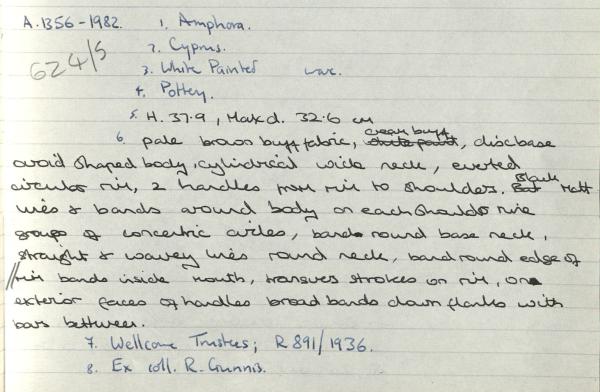 A.1356-1982. 1. Amphora.
624/5 2. Cyprus.
3. White Painted ware.
4. Pottery.
5. H. 37.9, Max d. 32.6 cm
6. pale brown buff fabric, cream buff white paint, disc base
ovoid shaped body, cylindrical wide neck, everted
circular rim, 2 handles from rim to shoulders. Black matt
lines & bands around body on each shoulder nine
groups of concentric circles, bands round base neck,
straight & wavey lines round neck, band round edge of
rim bands inside mouth, transves strokes on rim, on
exterior faces of handles broad bands down flanks with
bars between.
7. Wellcome Trustees; R 891/1936.
8. Ex coll. R. Gunnis.